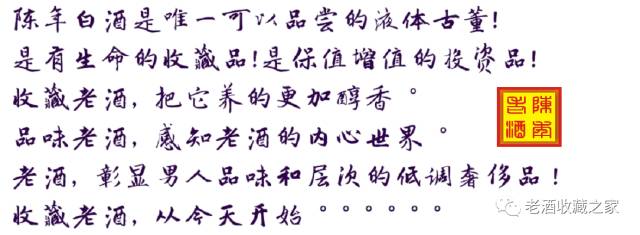 陈年白酒是唯一可以品尝的液体古董!
是有生命的收藏品!是保值增值的投资品!
收藏老酒，把它养的更加醇香。
品味老酒，感知老酒的内心世界。
老酒，彰显男人品味和层次的低调奢侈品!
收藏老酒，从今天开始。。。。。。
陈年老酒
老酒收藏之家